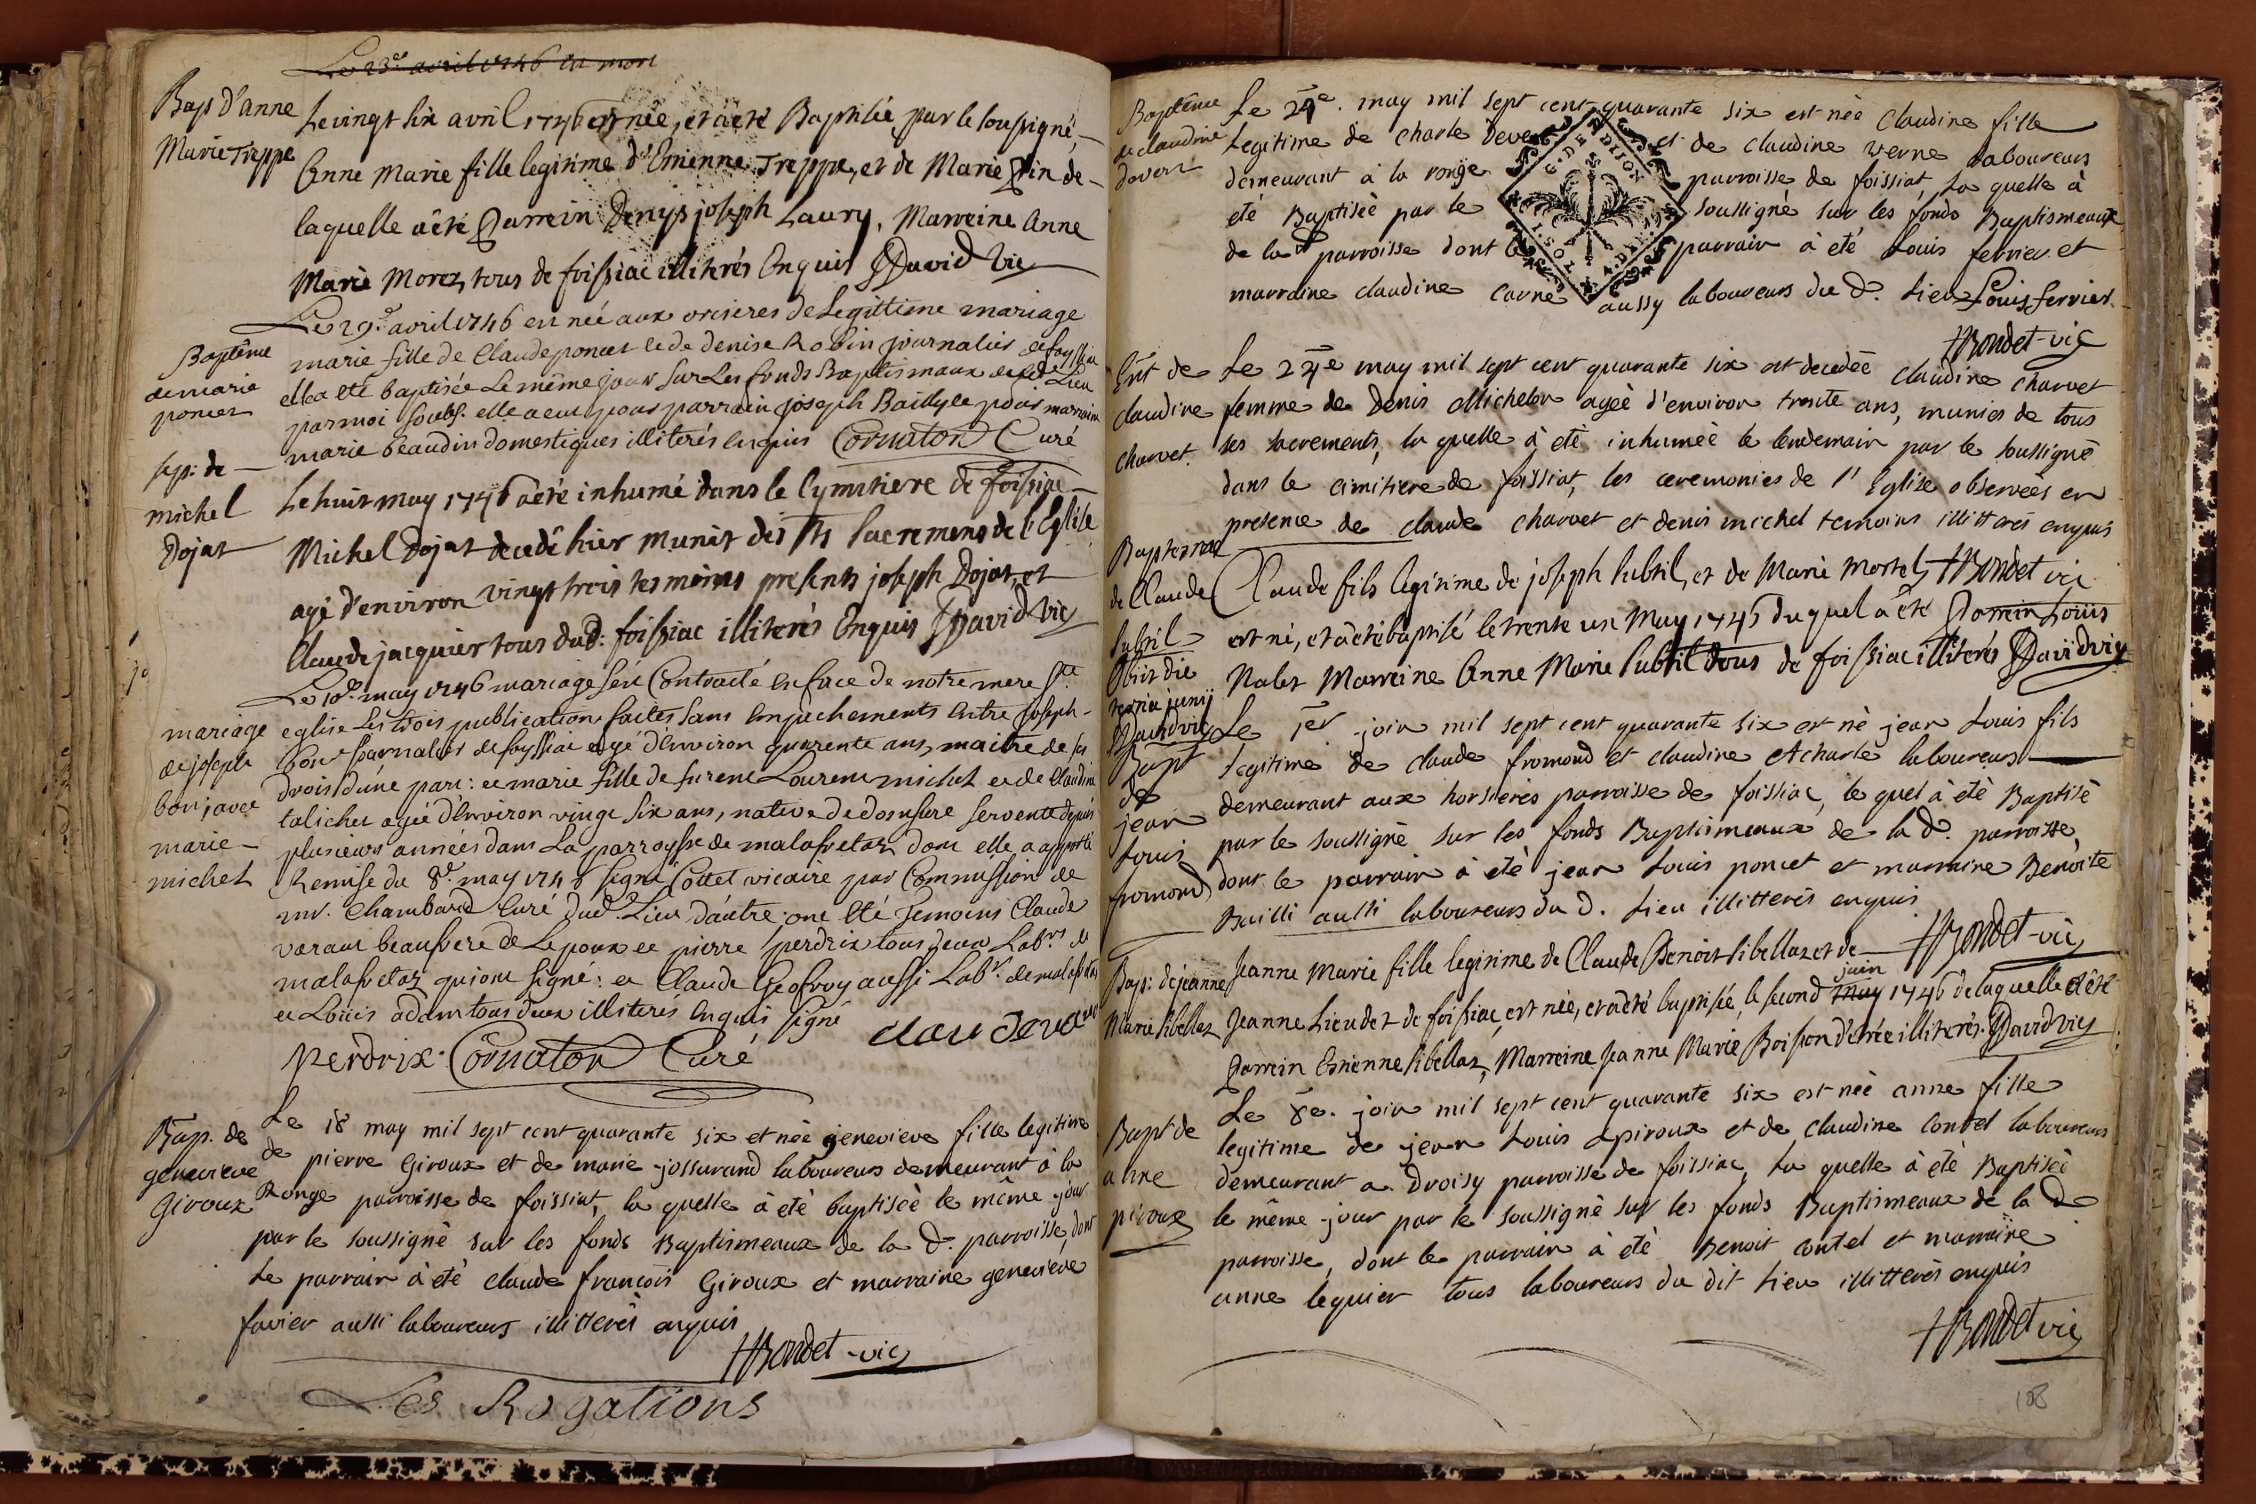 Le 23e avril 1746 en mort
Bap d'anne
Marie Treppe
Le vingt six avril 1746 est née, et aété Baptisée par le soussigné,
Anne Marie fille legitime d'Etienne Treppe, et de Marie Pin de
laquelle aété Parrein Denys joseph Laury, Marreine Anne
Marie Morez, tous de foissiac illiterés Enquis David Vic
Baptême
de marie
poncet
Le 29e avril 1746 est née aux orcieres de Legittime mariage
marie fille de Claude poncet et de denise Robin journalier de foyssia
elle a eté baptisée Le même jour sur Les fonds Baptismaux dudt Lieu
par moi soubs. elle a eu pour parrain joseph Bailly et pour marraine
marie beaudin domestiques illiterés enquis Cornaton Curé
sep: de
michel
Dojat
Le huit may 1746 aété inhumé dans le Cymitiere de foissiac
Michel Dojat decedé hier munit des Sts Sacremens de l'Eglise
agé d'environ vingt trois tesmoins presents joseph Dojat, et
Claude jacquier tous dud: foissiac illiterés Enquis David Vic
mariage
de joseph
bon; avec
marie
michel
Le 10e may 1746 mariage s'est Contracté en face de notre mere Ste
eglise Les trois publications faites sans empechements Entre joseph
bon journalier de foyssiac agé d'Environ quarente ans, maitre de ses
droits d'une part: et marie fille de Laurent michel et de Claudine
talichet agée d'Environ vingt six ans, native de servente depuis
plusieurs années dans La parroysse de malafretaz dont elle a apporté
Remise du 8e may 1746 signé Cottet vicaire par Commission de
mr. Chambard Curé dud. Lieu d'autre: ont eté temoins Claude
varaut beaufrere de Lepoux et pierre perdrix tous deux Labrs de
malafretaz qui ont signé: et Claude Geofroy aussi Labr. de malafretaz
et Loüis adam tous deux illiterés enquis signé
Perdrix Cornaton Curé
Bap. de
genevieve
Giroux
Le 18 may mil sept cent quarante six et née genevieve fille legitime
de pierre Giroux et de marie jossurand laboureurs demeurant à la
Ronge parroisse de foissiat, la quelle à été baptiseé le même jour
par le soussigné sur les fonds Baptismeaux de la D. parroisse, dont
Le parrain à été claude françois Giroux et marraine genevieve
favier aussi laboureurs illitterés enquis
HBondet vic
Les Rogations
Baptême
de claudine
devert
Le 29e. may mil sept cent quarante six est née Claudine fille
Legitime de charle deve et de claudine verne Laboureurs
demeurant à la ronge parroisse de foissiat, La quelle à
eté Baptiseé par le soussigné sur les fonds Baptismeaux
de la D parroisse dont le parrain à eté Louis ferrier et
marraine claudine carne aussy laboureurs du D. Lieu Louis ferrier
HBondet vic
G. DE DIJON
1. SOL 4. D.
Ent de
claudine
charvet
Le 29e may mil sept cent quarante six est decedeé claudine charvet
femme de Denis Michelon ageé d'environ trente ans, munies de tous
ses sacrements, la quelle à eté inhumeé le lendemain par le soussigné
dans le cimitiere de foissiat, les ceremonies de l'Eglise observeés en
presence de claude charvet et denis michel temoins illitterés enquis
HBondet vic
de Claude
subtil
Obiit die
tertia junij
David vic
Claude fils legitime de joseph subtil, et de Marie Mortel
est né, et aété baptisé le trente un May 1746 duquel aété Parrein Loüis
Nalet Marreine Anne Marie subtil tous de foissiac illiterés David vic
Bapt
de
jean
Louis
fromond
Le 1er join mil sept cent quarante six est né jean Louis fils
legitime de claude fromond et claudine Acharle laboureurs
demeurant aux horsieres parroisse de foissiac, le quel à été Baptisé
par le soussigné sur les fonds Baptismeaux de la D. parroisse,
dont le parrain à été jean Louis poncet et marraine Benoite
Bailli aussi laboureurs du D. Lieu illitterés enquis
HBondet vic
Bap: de jeanne
Marie sibellaz
Jeanne Marie fille legitime de Claude Benoit sibellaz et de
Jeanne Lieudet de foissiac, est née, et aété baptisée, le second may juin 1746 de laquelle aété
Parrein Etienne sibellaz, Marreine Jeanne Marie Boisson d'etrée illiterés. David vic
Bapt de
anne
piroux
Le 8e. join mil sept cent quarante six est née anne fille
legitime de jean Louis piroux et de claudine contel laboureurs
demeurant a Droisy parroisse de foissiac, La quelle à été Baptiseé
le même jour par le soussigné sur les fonds Baptismeaux de la D
parroisse, dont le parrain à été Benoit contel et marraine
anne lequier tous laboureurs du dit Lieu illitterés enquis
HBondet vic
188